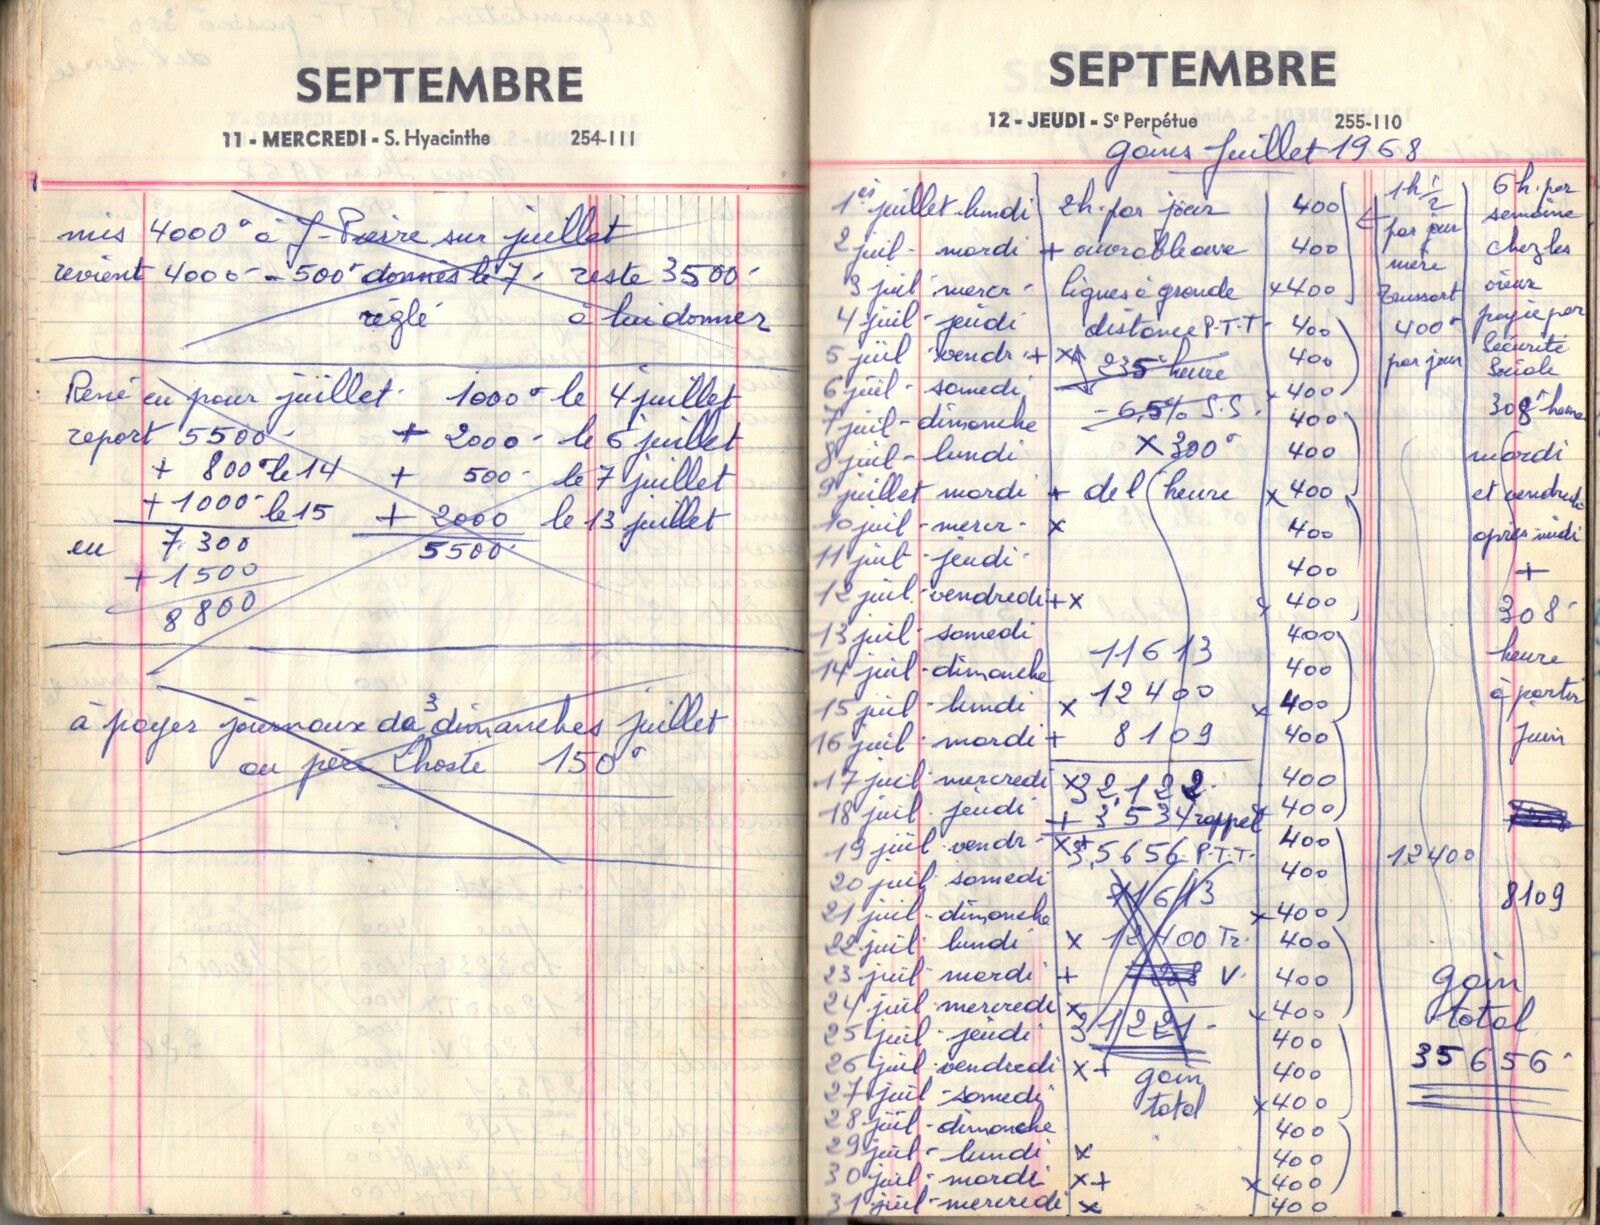 SEPTEMBRE
11 - MERCREDI - S. Hyacinthe 254-111
mis 4000° à J-Pierre sur juillet
revient 4000 - 500° donnés le 7 - reste 3500-
réglé à lui donner
René eu pour juillet - 1000° le 4 juillet
report 5500 - + 2000 - le 6 juillet
+ 800° le 14 + 500 - le 7 juillet
+ 1000° le 15 + 2000 le 13 juillet
eu 7.300 5500-
+ 1500
8800
à payer journaux de 3 dimanches juillet
au père Lhoste 150°
SEPTEMBRE
12 - JEUDI - Sᵉ Perpétue 255-110
gains Juillet 1968
1er juillet lundi 2h. par jour 400
2 juil - mardi + ouvrable avec 400
3 juil mercr - lignes à grande x 400
4 juil - jeudi distance P.T.T - 400
5 juil vendr - + x 235° heure 400
6 juil - samedi x 400
7 juil - dimanche - 6,5% S.S. 400
8 juil - lundi x 300° 400
9 juillet mardi + de l'heure x 400
10 juil - mercr - x 400
11 juil - jeudi - 400
12 juil - vendredi + x x 400
13 juil - samedi 400
14 juil - dimanche 11613 400
15 juil - lundi x 12400 x 400
16 juil - mardi + 8109 400
17 juil mercredi x 32,122 - 400
18 juil jeudi + 3,534 rappel x 400
19 juil vendr - x + 35656 P.T.T. 400
20 juil samedi 11613 400
21 juil - dimanche x 400
22 juil - lundi x 12400 Tr. 400
23 juil mardi + V. 400
24 juil - mercredi x x 400
25 juil - jeudi 31221 - 400
26 juil vendredi x + gain 400
27 juil - samedi total x 400
28 juil - dimanche 400
29 juil - lundi x 400
30 juil - mardi x + x 400
31 juil - mercredi x 400
1h 1/2
par jour
mère
Toussart
400°
par jour
12400
6h. par
semaine
chez les
vieux
payée par
Sécurité
Sociale
308° heure
mardi
et vendredi
après midi
+
308-
heure
à partir
Juin
8109
gain
total
35656-